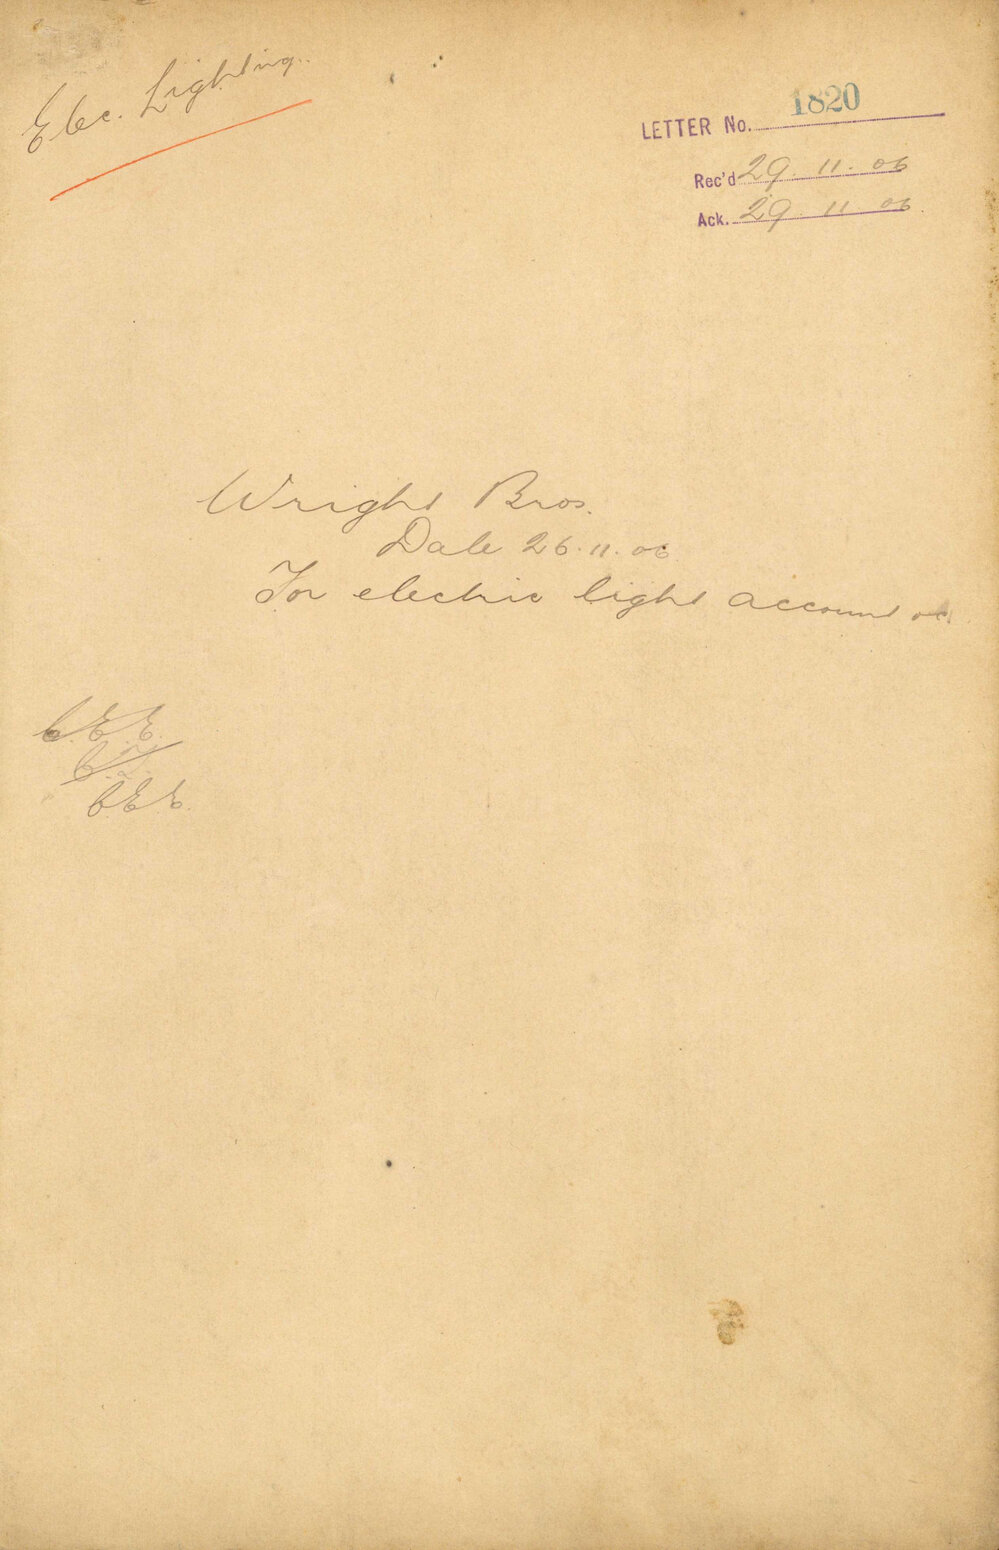 Elec. Lighting.
LETTER No. 1820
Rec'd 29.11.06
Ack. 29.11.06
Wright Bros.
Date 26.11.06
For electric light account
C.E.E.
C.T.
C.E.E.